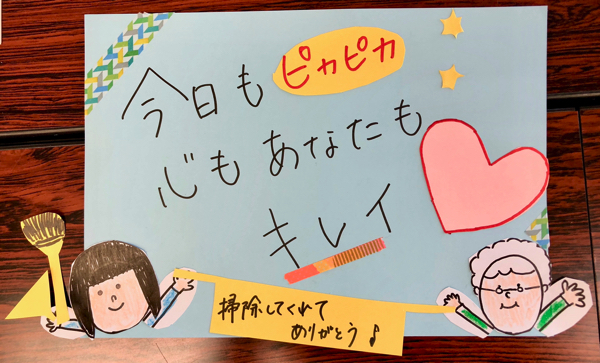 今日も ピカピカ
心も あなたも
キレイ
掃除してくれて
ありがとう♪